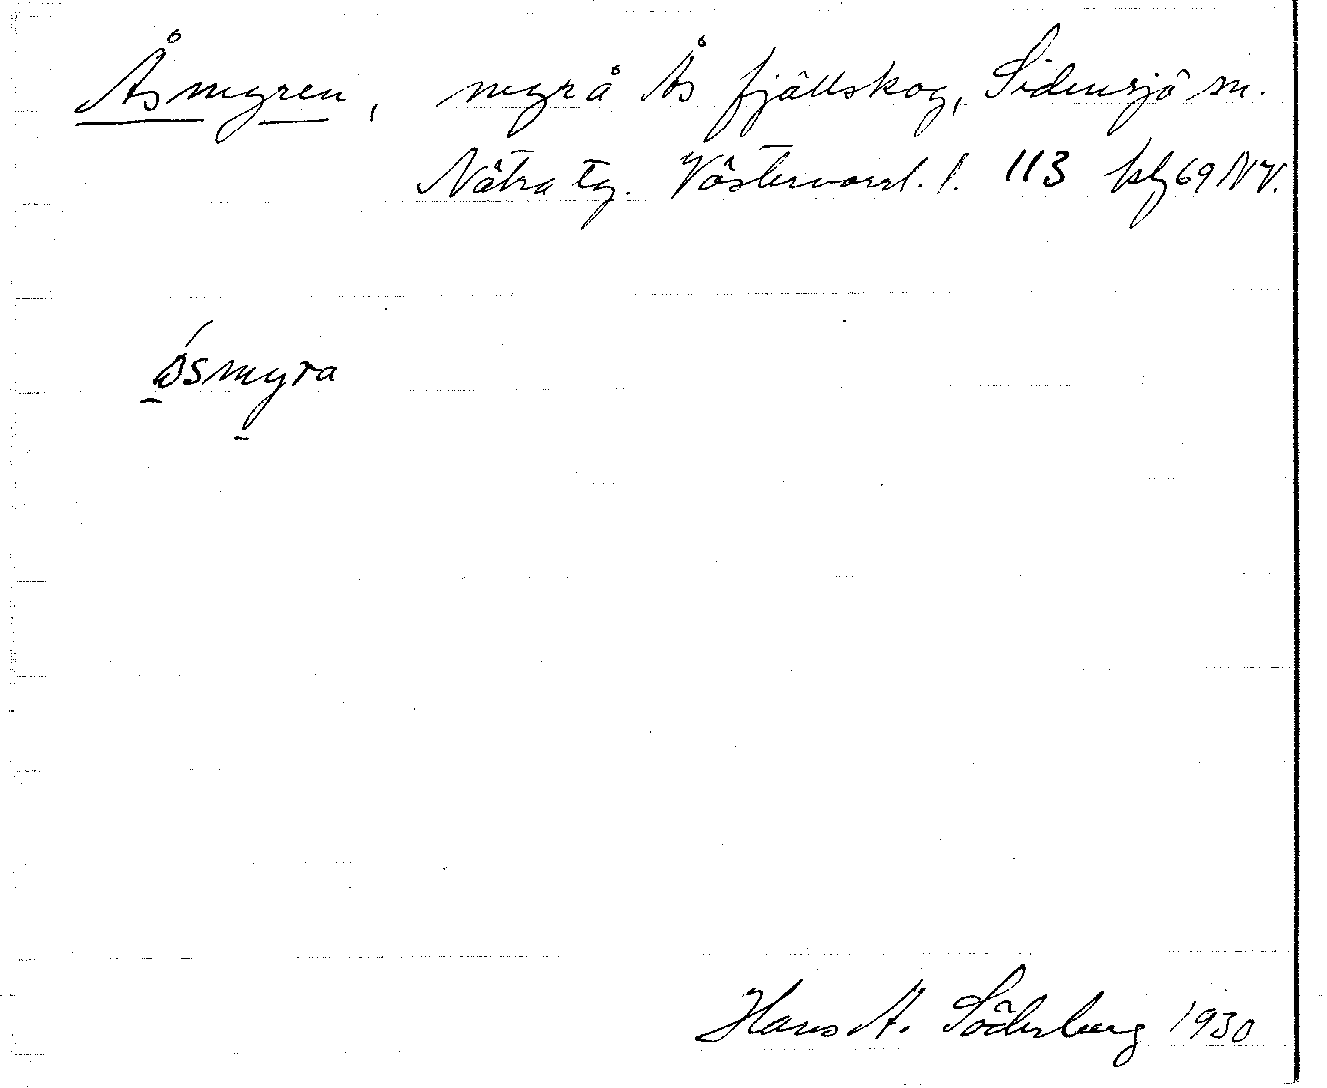 Åsmyren, myr å Ås fjällskog, Sidensjö sn.
Nätra tg. Västernorrl. l. 113 kbl 69 NV.
ósmyra
Hans A. Söderberg 1930